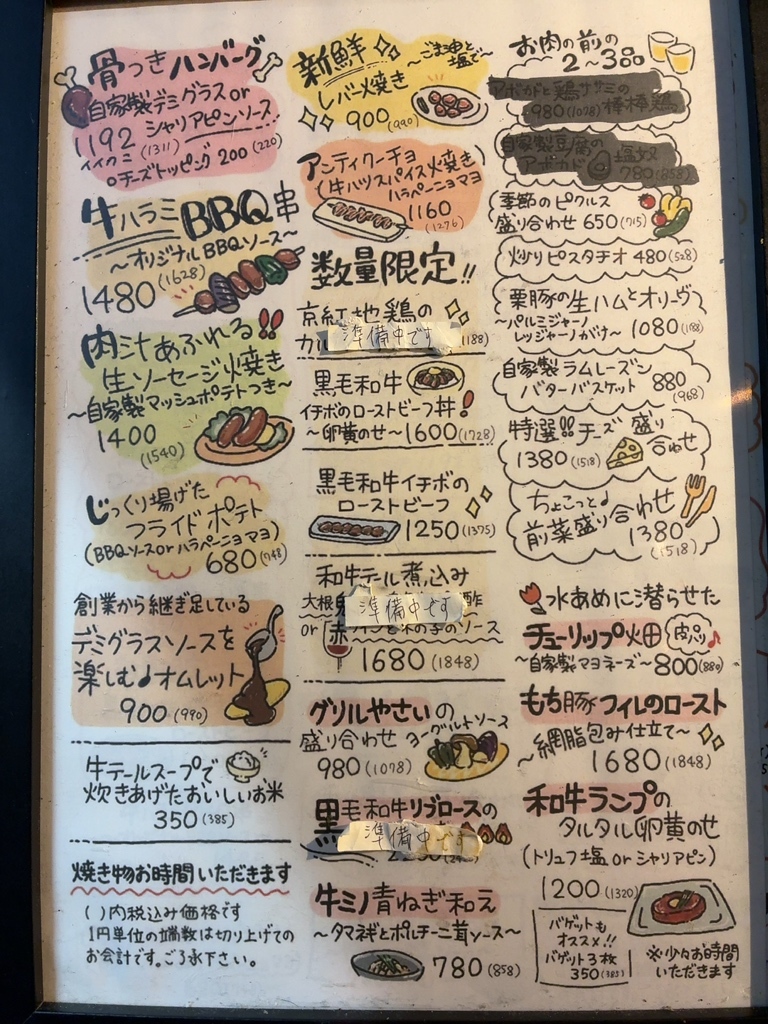 骨つきハンバーグ
自家製デミグラスor
シャリアピンソース
1192 (1311)
イイクニ
○チーズトッピング 200 (220)
牛ハラミBBQ串
〜オリジナルBBQソース〜
1480 (1628)
肉汁あふれる!!
生ソーセージ火焼き
〜自家製マッシュポテトつき〜
1400
(1540)
じっくり揚げた
フライドポテト
(BBQソースorハラペーニョマヨ)
680 (748)
創業から継ぎ足している
デミグラスソースを
楽しむ♪オムレット
900 (990)
牛テールスープで
炊きあげたおいしいお米
350 (385)
焼き物お時間いただきます
( )内税込み価格です
1円単位の端数は切り上げての
お会計です。ご了承下さい。
新鮮
〜ごま油と
塩で〜
レバー焼き
900 (990)
アンティクーチョ
(牛ハツスパイス焼き)
ハラペーニョマヨ
1160
(1276)
数量限定!!
京紅地鶏の
準備中です
1188)
黒毛和牛
イチボのローストビーフ丼!
〜卵黄のせ〜1600 (1728)
黒毛和牛イチボの
ローストビーフ
1250 (1375)
和牛テール煮込み
大根 準備中です 酢
or 赤ワインと木の子のソース
1680 (1848)
グリルやさいの
盛り合わせ ヨーグルトソース
980 (1078)
黒毛和牛リブロースの
準備中です
牛ミノ青ねぎ和え
〜タマネギとポルチーニ茸ソース〜
780 (858)
お肉の前の
2〜3品
アボカドと鶏ササミの
980 (1078) 棒棒鶏
自家製豆腐の
アボカド 塩奴
780 (858)
季節のピクルス
盛り合わせ 650 (715)
炒りピスタチオ 480 (528)
栗豚の生ハムとオリーヴ
〜パルミジャーノ
レッジャーノがけ〜 1080 (1188)
自家製ラムレーズン
バターバスケット 880
(968)
特選!!チーズ盛り
合わせ
1380 (1518)
ちょこっと♪
前菜盛り合わせ
1380
(1518)
水あめに潜らせた
チューリップ火田 肉パリ♪
〜自家製マヨネーズ〜800 (880)
もち豚フィレのロースト
〜網脂包み仕立て〜
1680 (1848)
和牛ランプの
タルタル卵黄のせ
(トリュフ塩 or シャリアピン)
1200 (1320)
バゲットも
オススメ!!
バゲット3枚
350 (385)
※少々お時間
いただきます